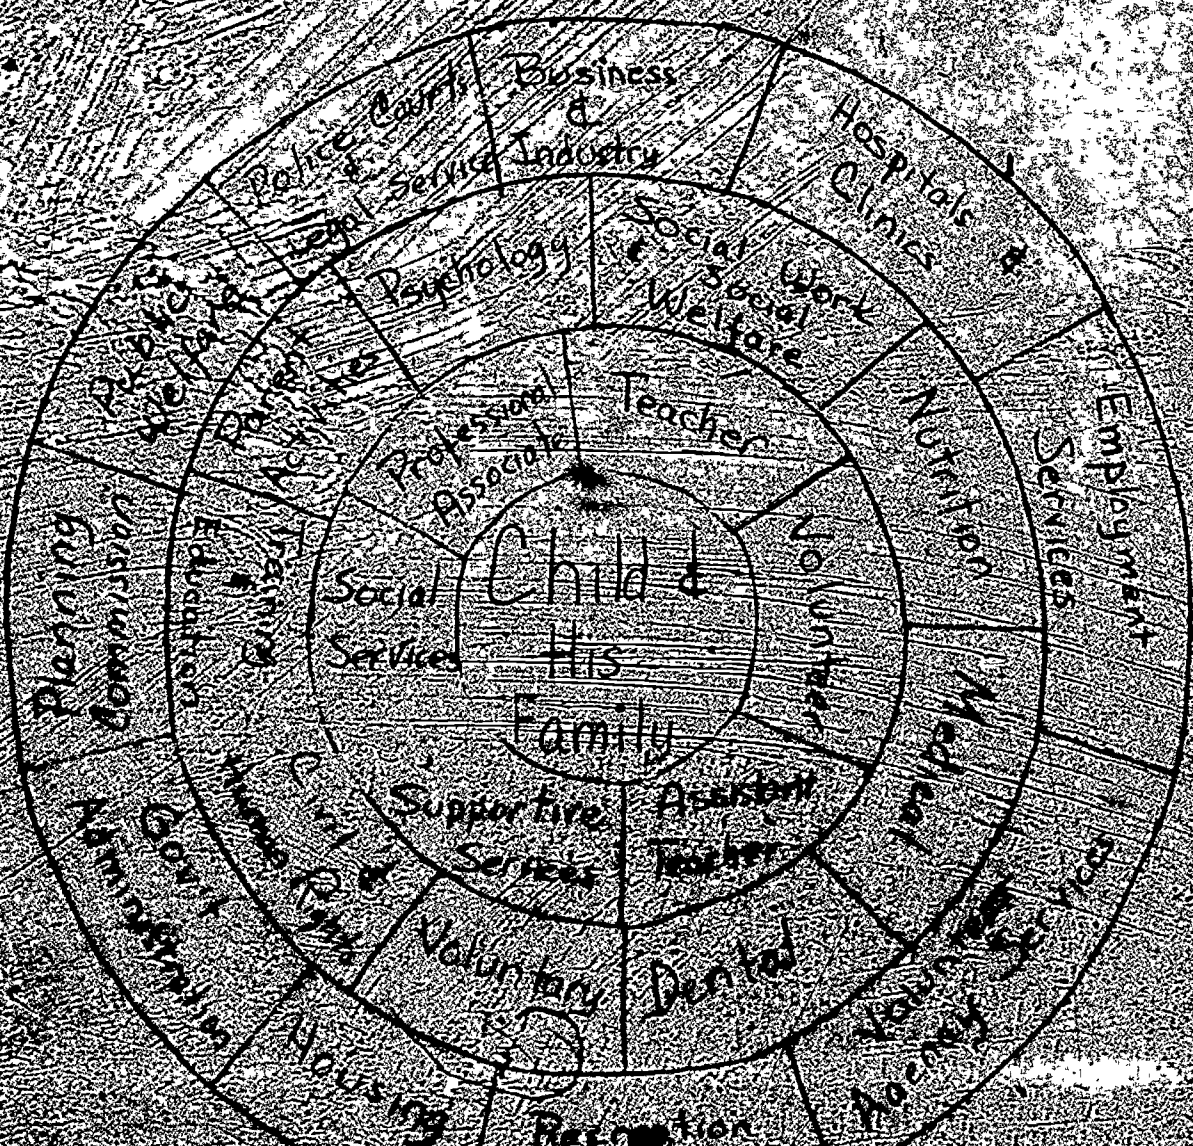 Child &
His
Family
Teacher
Volunteer
Assistant
Teacher
Supportive
Services
Social
Services
Professional
Associate
Social Work
&
Social
Welfare
Nutrition
Medical
Dental
Voluntary
Civil &
Human Rights
Training
&
Education
Parent
Activities
Psychology
Business
&
Industry
Hospitals &
Clinics
Employment
Services
Voluntary
Agency Services
Recreation
Housing
Gov't
Administration
Planning
Commission
Public
Welfare
Police Courts
&
Legal Service